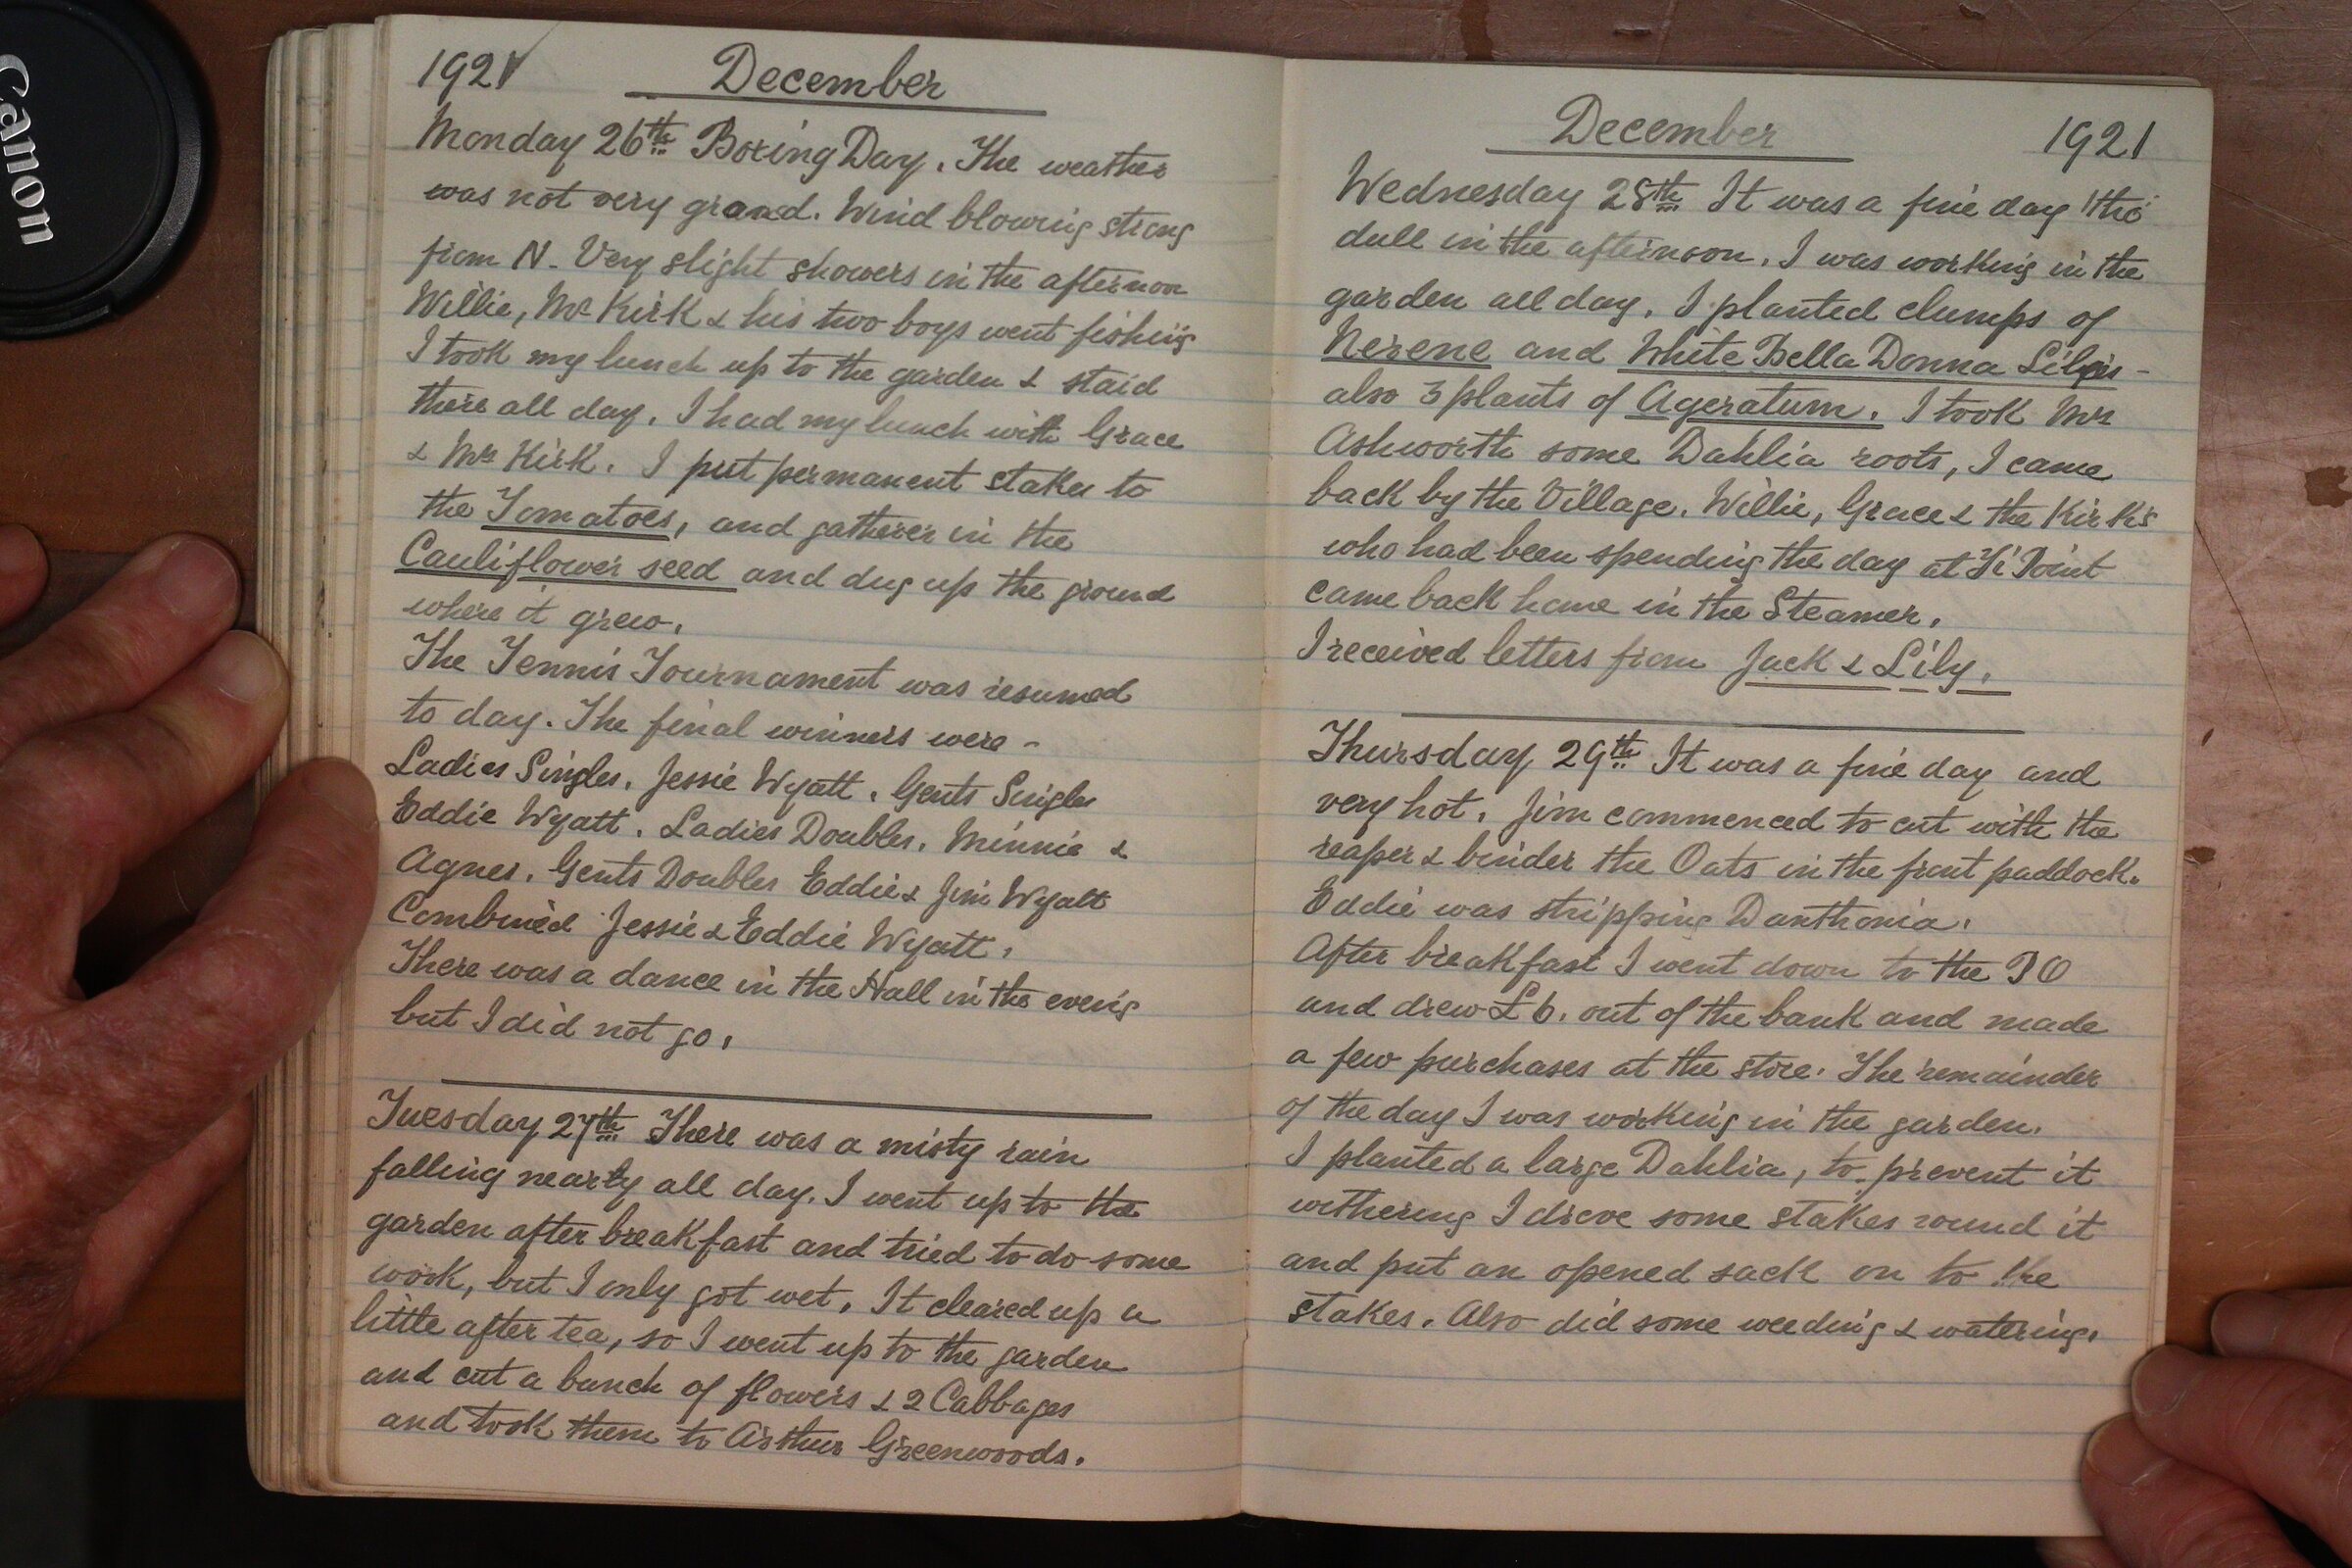 Canon
1921
December
Monday 26th Boxing Day. The weather
was not very grand. Wind blowing strong
from N. Very slight showers in the afternoon
Willie, Mr Kirk & his two boys went fishing
I took my lunch up to the garden & staid
there all day. I had my lunch with Grace
& Mrs Kirk. I put permanent stakes to
the Tomatoes, and gatherer in the
Cauliflower seed and dug up the ground
where it grew.
The Tennis Tournament was resumed
to day. The final winners were -
Ladies Singles. Jessie Wyatt. Gents Singles
Eddie Wyatt. Ladies Doubles. Minnie &
Agnes. Gents Doubles Eddie & Jim Wyatt
Combined Jessie & Eddie Wyatt.
There was a dance in the Hall in the even'g
but I did not go.
Tuesday 27th There was a misty rain
falling nearly all day. I went up to the
garden after breakfast and tried to do some
work, but I only got wet. It cleared up a
little after tea, so I went up to the garden
and cut a bunch of flowers & 2 Cabbages
and took them to Arthur Greenwoods.
December
1921
Wednesday 28th It was a fine day tho'
dull in the afternoon. I was working in the
garden all day. I planted clumps of
Nerene and White Bella Donna Lilies -
also 3 plants of Ageratum. I took Mrs
Ashworth some Dahlia roots, I came
back by the Village. Willie, Grace & the Kirks
who had been spending the day at Ti Point
came back home in the Steamer.
I received letters from Jack & Lily.
Thursday 29th It was a fine day and
very hot. Jim commenced to cut with the
reaper & binder the Oats in the front paddock.
Eddie was stripping Danthonia.
After breakfast I went down to the PO
and drew £6. out of the bank and made
a few purchases at the store. The remainder
of the day I was working in the garden.
I planted a large Dahlia, to prevent it
withering I drove some stakes round it
and put an opened sack on to the
stakes. Also did some weeding & watering.